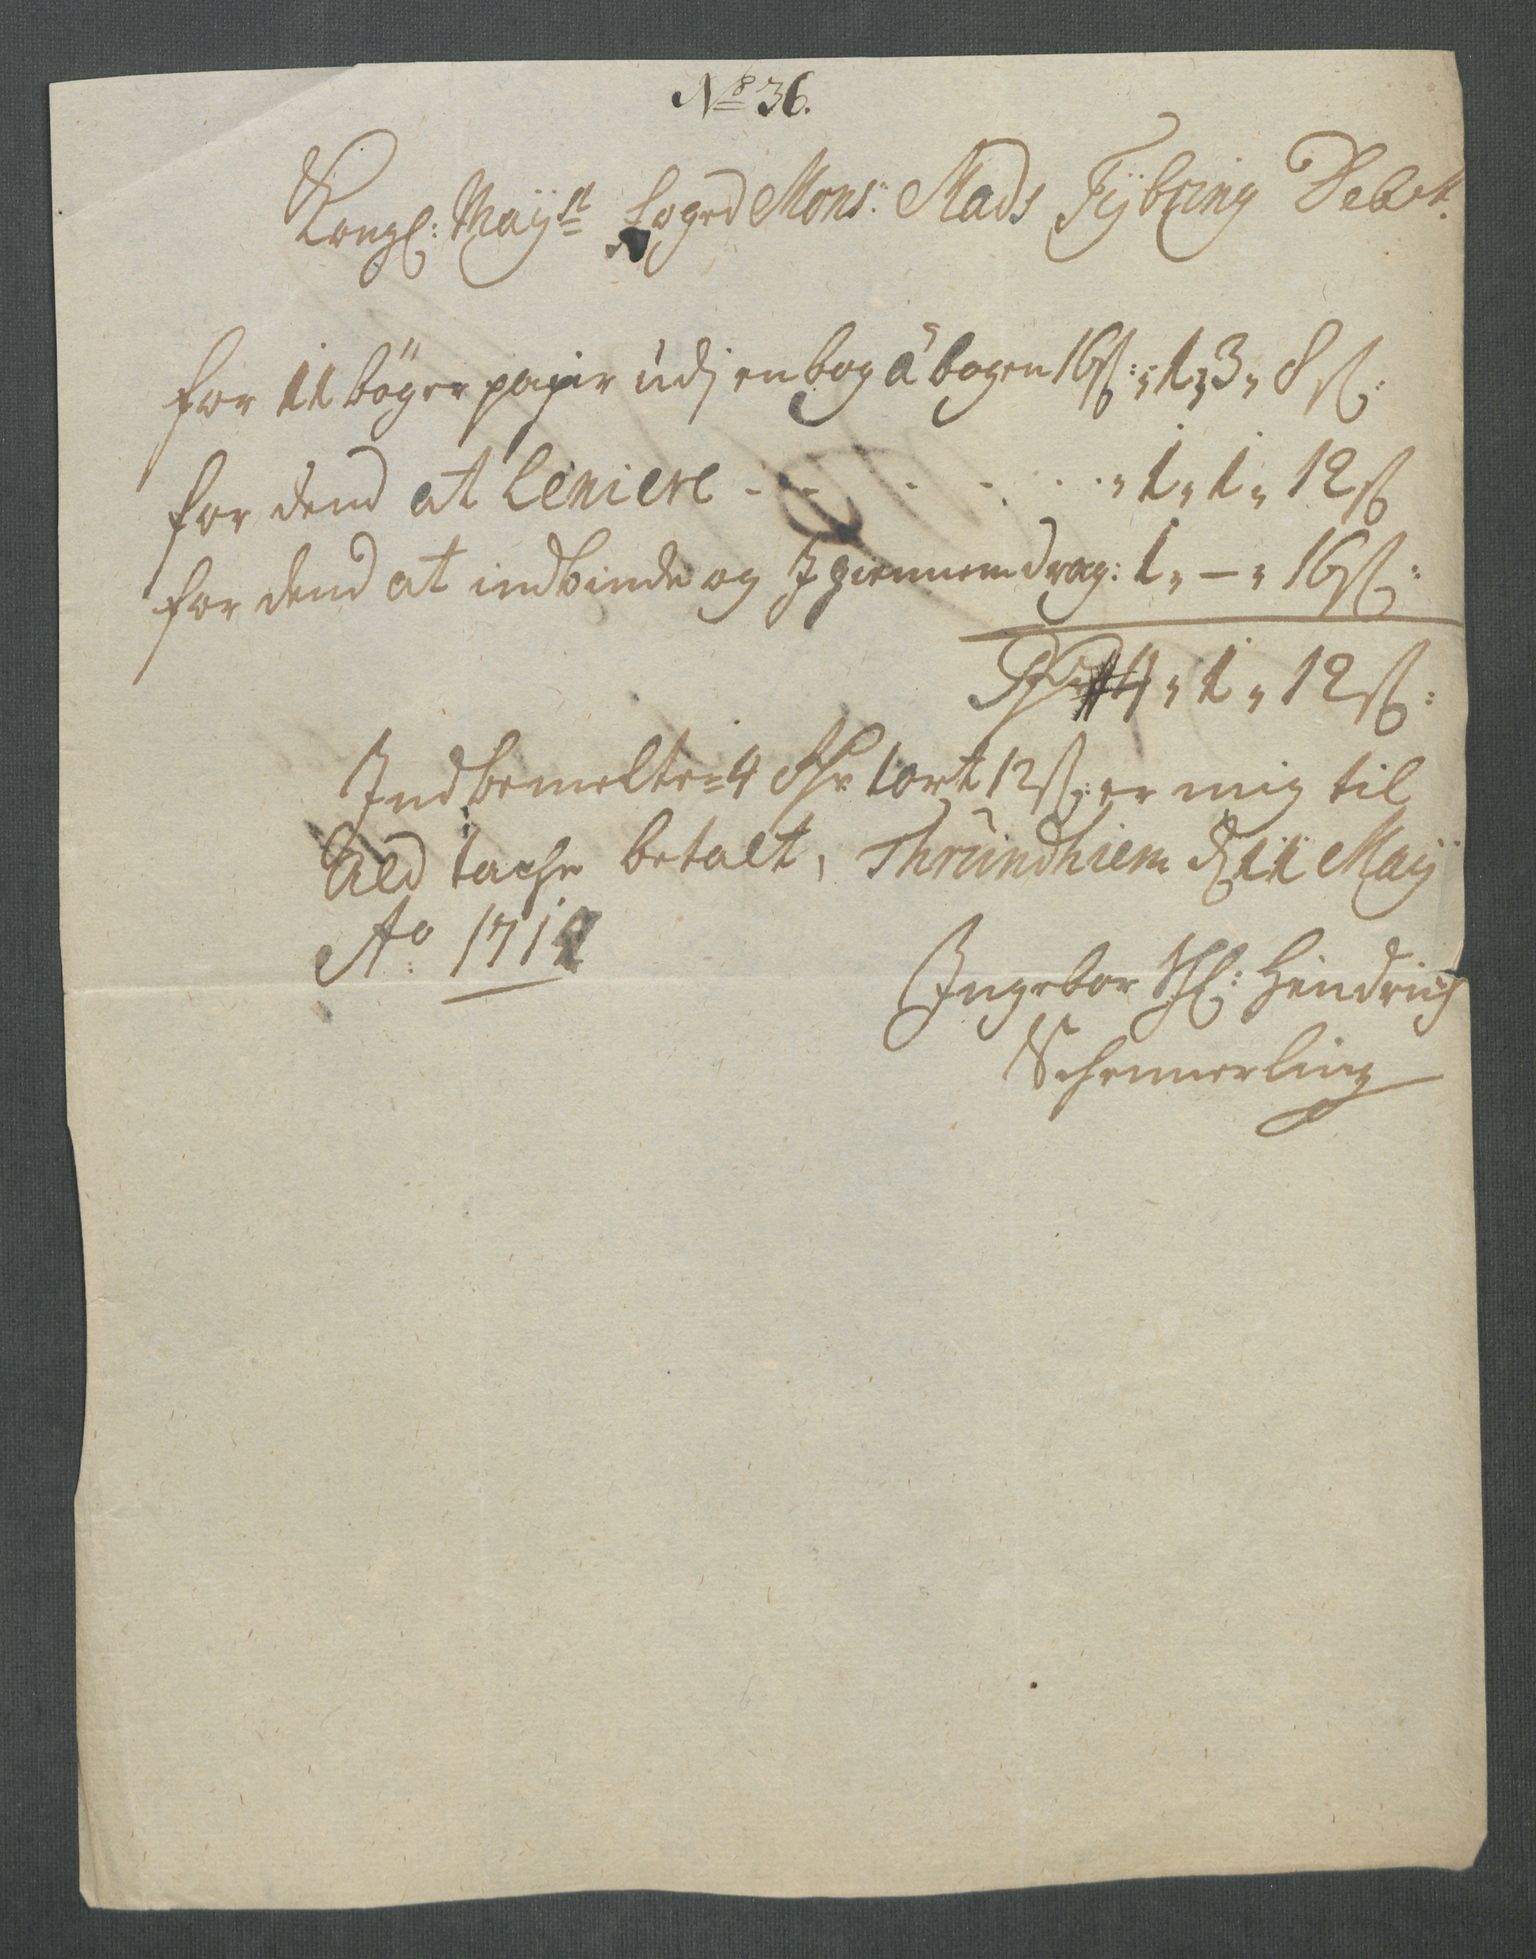 No 36.
Kongl: Mayst foged Mons: Mads Fÿbring Debet.
for 11 böger papir udj en bog â bogen 16 ß: „ 1 „ 3 „ 8 ß:
for dend at leniere - - - - - „ 1 „ 1 „ 12 ß
for dend at indbinde og I giennemdrag: 1 „ – „ 16 ß:
Rdr 4 „ 1 „ 12 ß:
Indbemelte 4 Rdr 1 ort 12 ß: er mig til
Ald tache betalt, Thrundhiem d 11 Maÿ
Ao 171
Ingebor Sl: Hindrich
Schmerling